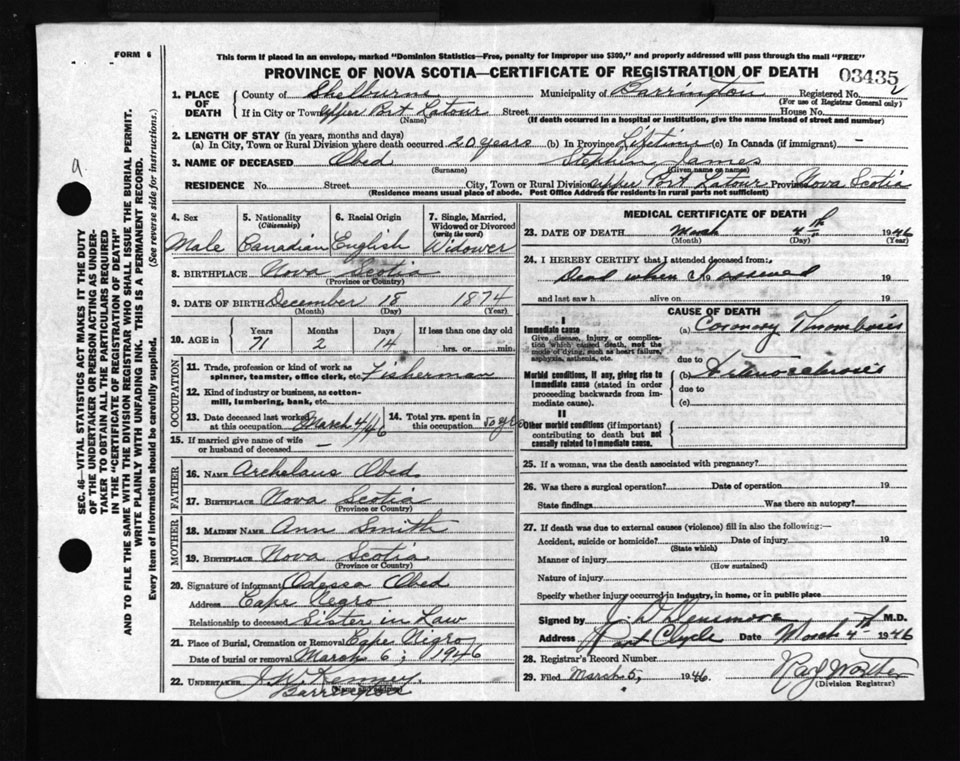 FORM 6
This form if placed in an envelope, marked "Dominion Statistics—Free, penalty for improper use $300," and properly addressed will pass through the mail "FREE"
PROVINCE OF NOVA SCOTIA—CERTIFICATE OF REGISTRATION OF DEATH
03435
1. PLACE OF DEATH
County of Shelburne Municipality of Barrington Registered No. 2
(For use of Registrar General only)
If in City or Town Upper Port Latour Street House No.
(Name) (If death occurred in a hospital or institution, give the name instead of street and number)
2. LENGTH OF STAY (in years, months and days)
(a) In City, Town or Rural Division where death occurred 20 years (b) In Province Lifetime (c) In Canada (if immigrant) —
3. NAME OF DECEASED Obed Stephen James
(Surname) (Given name or names)
RESIDENCE No. Street City, Town or Rural Division Upper Port Latour Province Nova Scotia
(Residence means usual place of abode. Post Office Address for residents in rural parts not sufficient)
4. Sex Male
5. Nationality (Citizenship) Canadian
6. Racial Origin English
7. Single, Married, Widowed or Divorced (write the word) Widower
8. BIRTHPLACE Nova Scotia
(Province or Country)
9. DATE OF BIRTH December 18 1874
(Month) (Day) (Year)
10. AGE in Years 71 Months 2 Days 14 If less than one day old hrs. or min.
OCCUPATION
11. Trade, profession or kind of work as spinner, teamster, office clerk, etc. Fisherman
12. Kind of industry or business, as cotton-mill, lumbering, bank, etc.
13. Date deceased last worked at this occupation March 4/46
14. Total yrs. spent in this occupation 50 yrs
15. If married give name of wife or husband of deceased —
FATHER
16. NAME Archelaus Obed.
17. BIRTHPLACE Nova Scotia
(Province or Country)
MOTHER
18. MAIDEN NAME Ann Smith
19. BIRTHPLACE Nova Scotia
(Province or Country)
20. Signature of informant Odessa Obed
Address Cape Negro
Relationship to deceased Sister in Law
21. Place of Burial, Cremation or Removal Cape Nigro
Date of burial or removal March 6; 1946
22. UNDERTAKER J. W. Kenney.
Barrington
MEDICAL CERTIFICATE OF DEATH
23. DATE OF DEATH March 4th 1946
(Month) (Day) (Year)
24. I HEREBY CERTIFY that I attended deceased from:
Dead when I arrived 19
and last saw h alive on 19
CAUSE OF DEATH
I
Immediate cause (a) Coronary Thrombosis
Give disease, injury or complication which caused death, not the mode of dying, such as heart failure, asphyxia, asthenia, etc.
due to
Morbid conditions, if any, giving rise to immediate cause (stated in order proceeding backwards from immediate cause).
(b) Arteriosclerosis
due to
(c)
II
Other morbid conditions (if important) contributing to death but not causally related to immediate cause.
25. If a woman, was the death associated with pregnancy?
26. Was there a surgical operation? Date of operation 19
State findings Was there an autopsy?
27. If death was due to external causes (violence) fill in also the following:—
Accident, suicide or homicide? Date of injury 19
(State which)
Manner of injury
(How sustained)
Nature of injury
Specify whether injury occurred in industry, in home, or in public place
Signed by J D Densmore M.D.
Address Port Clyde Date March 4th 1946
28. Registrar's Record Number
29. Filed March 5, 1946.
(Division Registrar)
SEC. 46—VITAL STATISTICS ACT MAKES IT THE DUTY
OF THE UNDERTAKER OR PERSON ACTING AS UNDER-
TAKER TO OBTAIN ALL THE PARTICULARS REQUIRED
IN THE "CERTIFICATE OF REGISTRATION OF DEATH"
AND TO FILE THE SAME WITH THE DIVISION REGISTRAR WHO SHALL ISSUE THE BURIAL PERMIT.
WRITE PLAINLY WITH UNFADING INK. THIS IS A PERMANENT RECORD.
Every item of information should be carefully supplied. (See reverse side for instructions.)